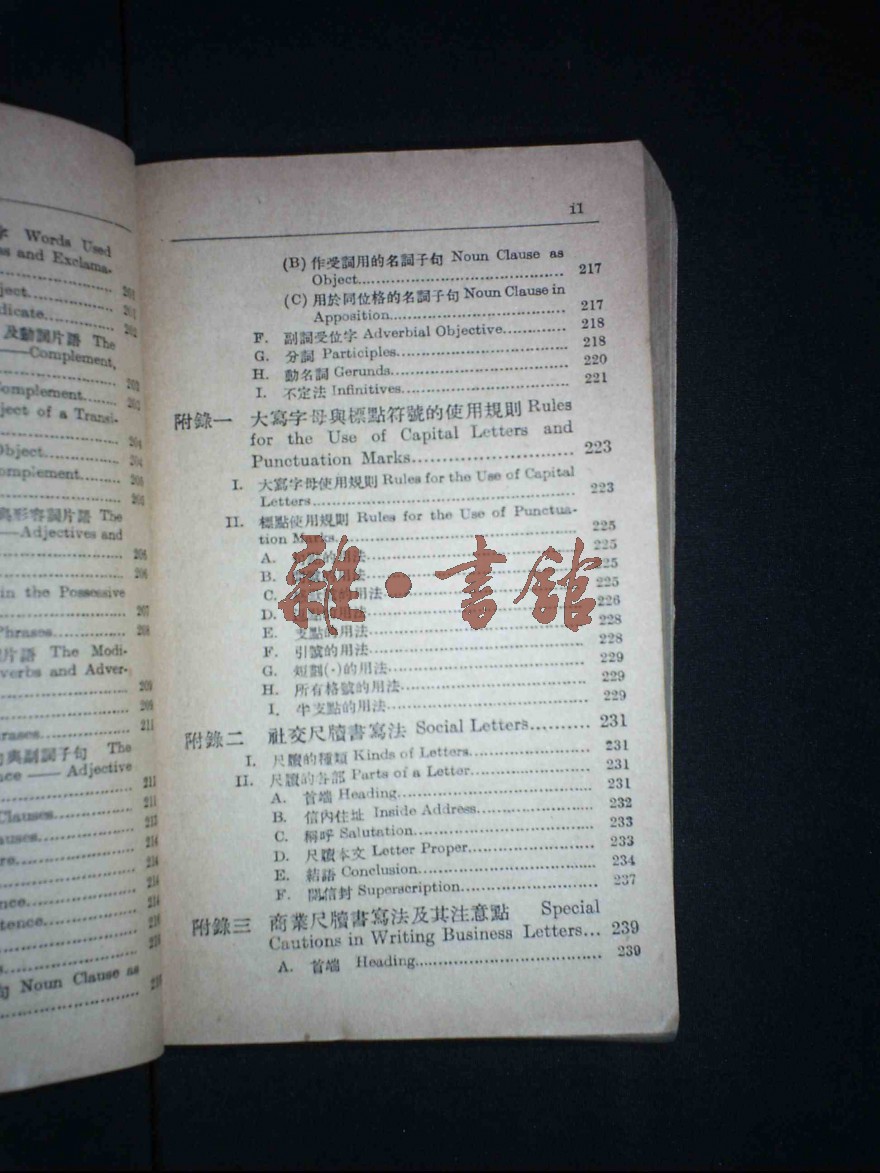 字 Words Used
as and Exclama-
201
ject 201
dicate 202
及動詞片語 The
——Complement,
203
omplement 203
ject of a Transi-
204
Object 204
omplement 205
與形容詞片語 The
——Adjectives and
206
206
in the Possessive
207
Phrases 208
片語 The Modi-
verbs and Adver-
209
209
rases 211
句與副詞子句 The
nce —— Adjective
211
Clauses
auses
re
214
nce 214
tence
句 Noun Clause as
ii
(B) 作受詞用的名詞子句 Noun Clause as
Object 217
(C) 用於同位格的名詞子句 Noun Clause in
Apposition 217
F. 副詞受位字 Adverbial Objective 218
G. 分詞 Participles 218
H. 動名詞 Gerunds 220
I. 不定法 Infinitives 221
附錄一 大寫字母與標點符號的使用規則 Rules
for the Use of Capital Letters and
Punctuation Marks 223
I. 大寫字母使用規則 Rules for the Use of Capital
Letters 223
II. 標點使用規則 Rules for the Use of Punctua-
tion Marks 225
A. 的用法 225
B. 的用法 225
C. 的用法 225
D. 的用法 226
E. 支點的用法 228
F. 引號的用法 228
G. 短劃(-)的用法 229
H. 所有格號的用法 229
I. 半支點的用法 229
附錄二 社交尺牘書寫法 Social Letters 231
I. 尺牘的種類 Kinds of Letters 231
II. 尺牘的各部 Parts of a Letter 231
A. 首端 Heading 231
B. 信內住址 Inside Address 232
C. 稱呼 Salutation 233
D. 尺牘本文 Letter Proper 233
E. 結語 Conclusion 234
F. 開信封 Superscription 237
附錄三 商業尺牘書寫法及其注意點 Special
Cautions in Writing Business Letters 239
A. 首端 Heading 239
雜·書館